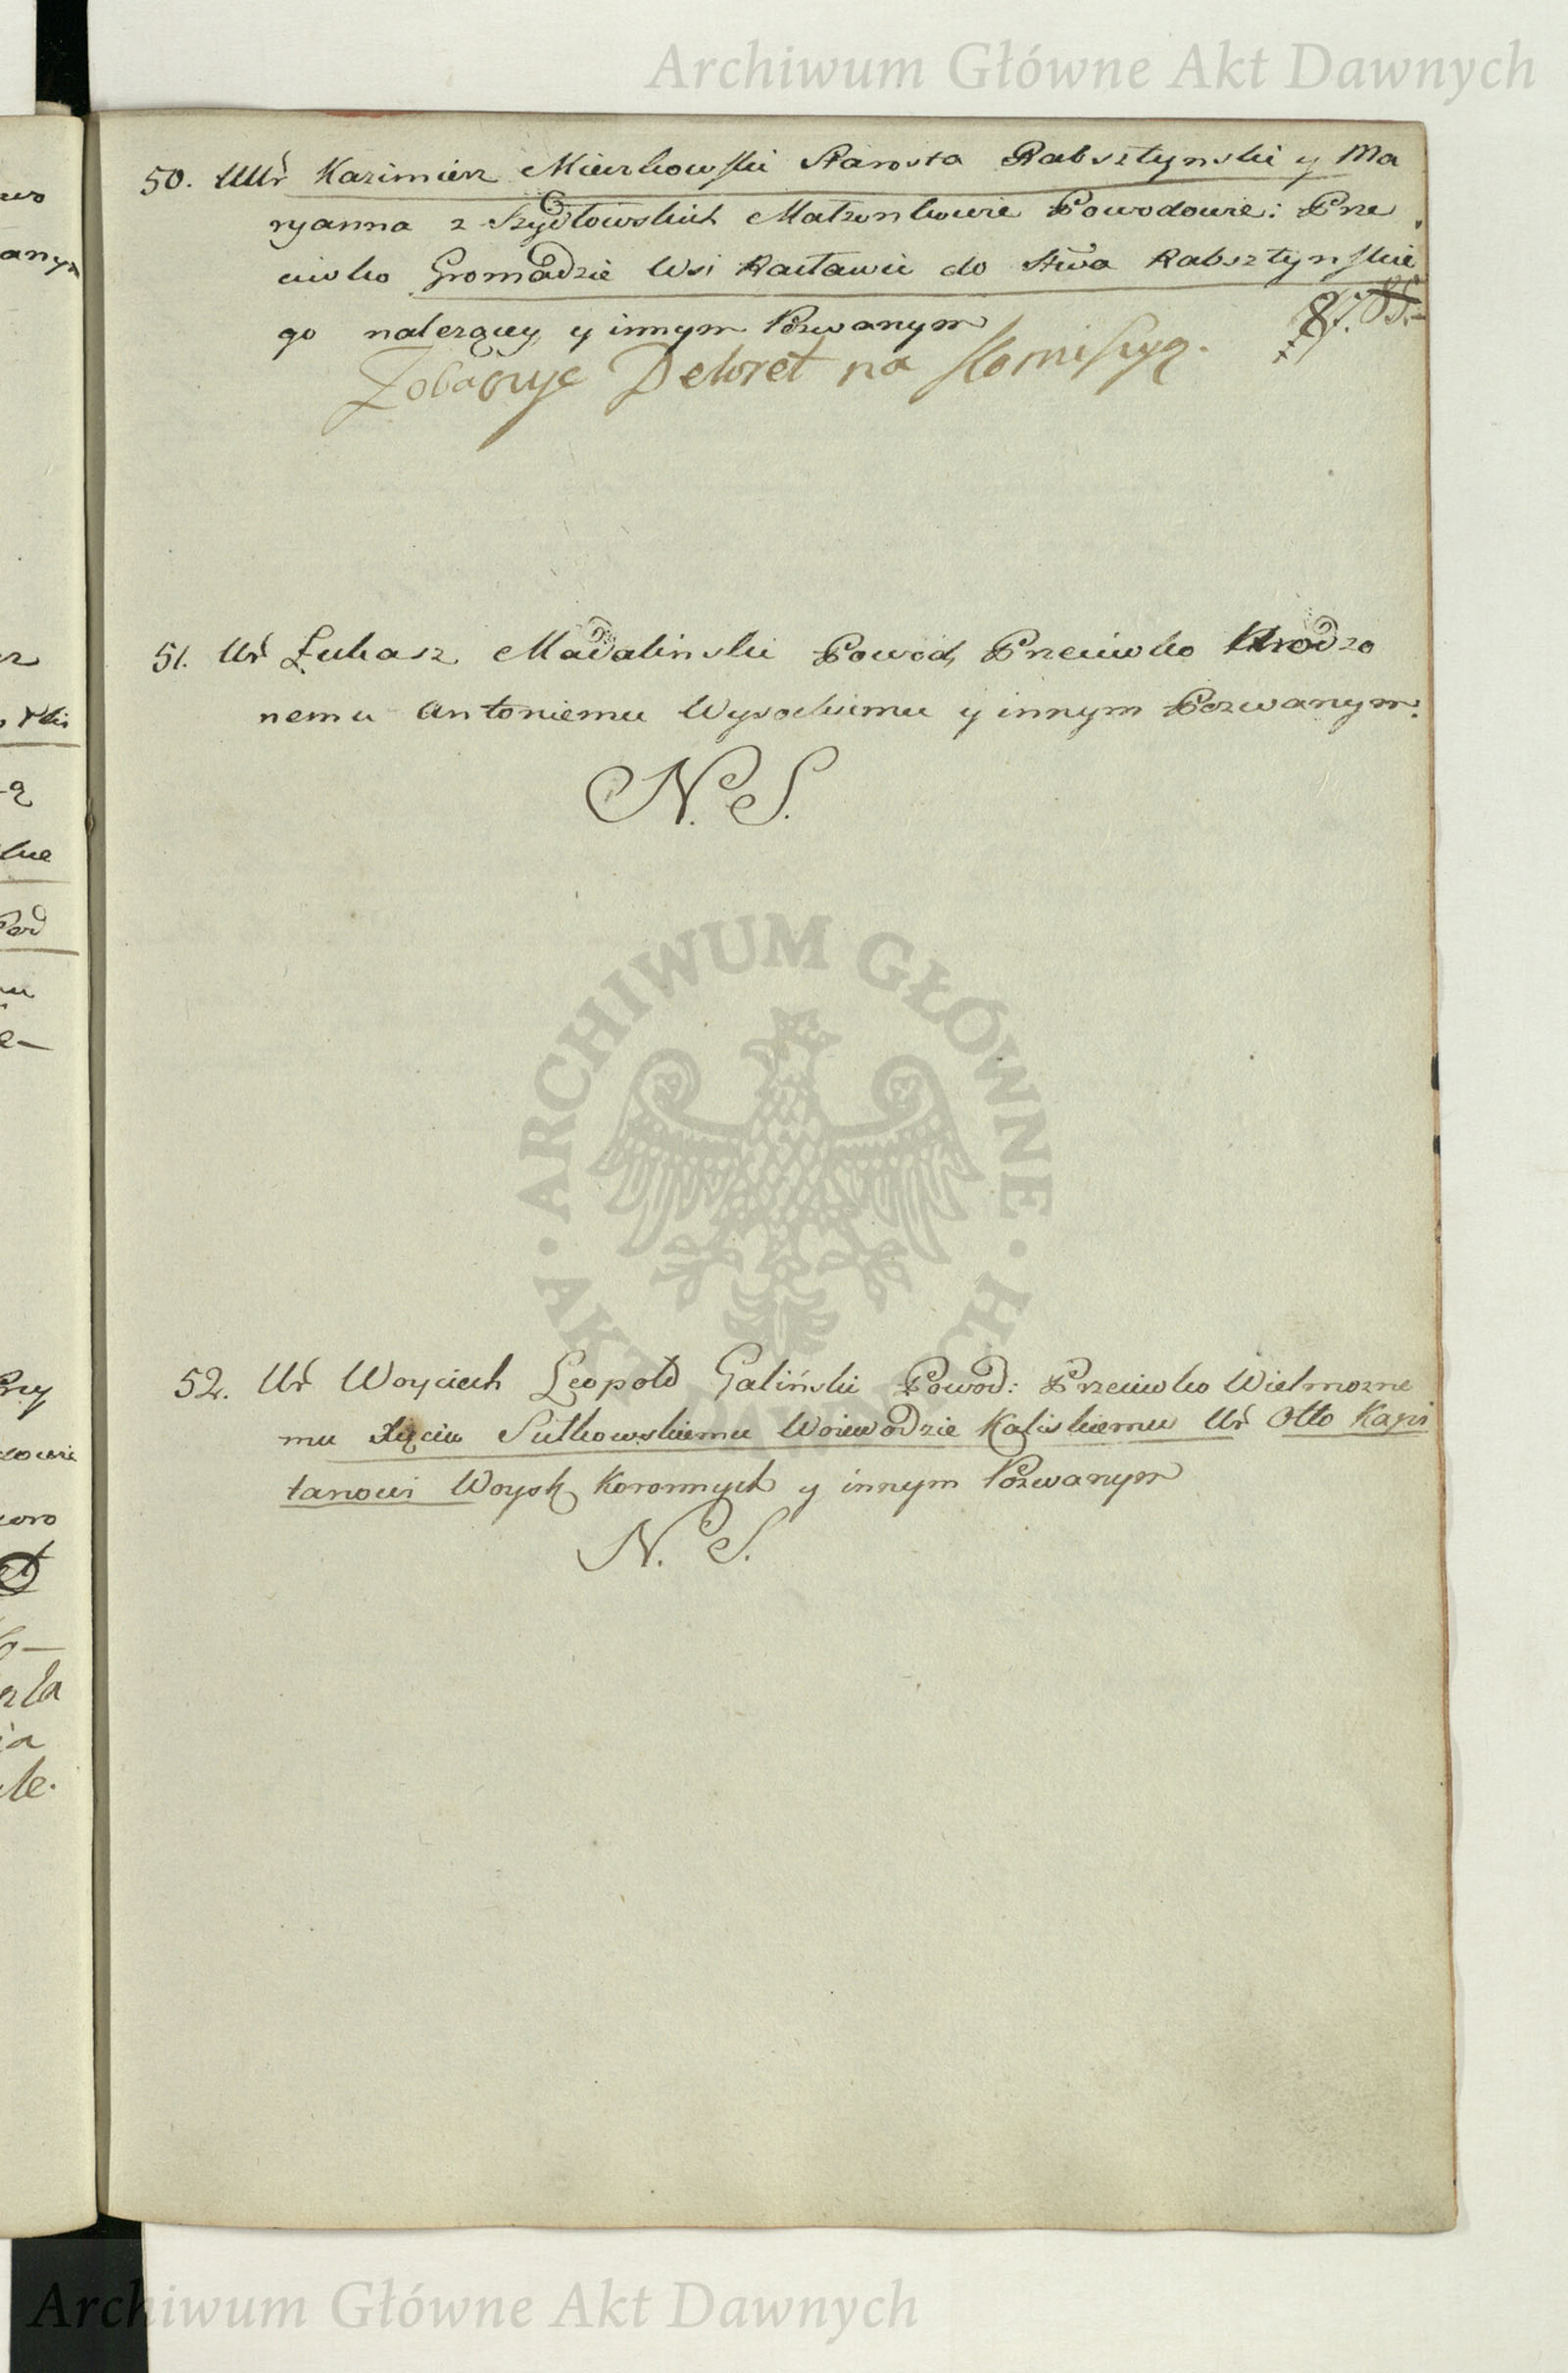 Archiwum Główne Akt Dawnych
50. UUr Kazimierz Mieszkowski Starosta Rabsztynski y Ma
ryanna z Szydłowskich Małzonkowie Powodowie: Prze
ciwko Gromadzie Wsi Racławic do Stwa Rabsztynskie
go nalezący y innym Pozwanym
Dekret na Kommissyą.
51. Ur Łukasz Madalinski Powod, Przeciwko Urodzo
nemu Antoniemu Wysockiemu y innym Pozwanym.
N. S.
ARCHIWUM GŁÓWNE AKT DAWNYCH
52. Ur Woyciech Leopold Galiński Powod: Przeciwko Wielmozne
mu Xięciu Sułkowskiemu Woiewodzie Kaliskiemu Ur Otto Kapi
tanowi Woysk Koronnych y innym Pozwanym
N. S.
Archiwum Główne Akt Dawnych